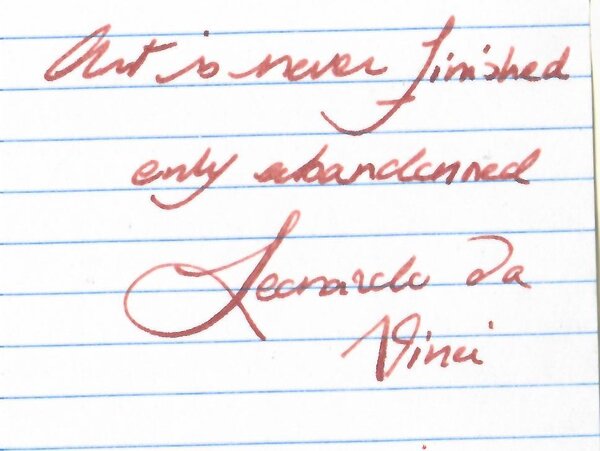 Art is never finished
only abandonned
Leonardo Da
Vinci